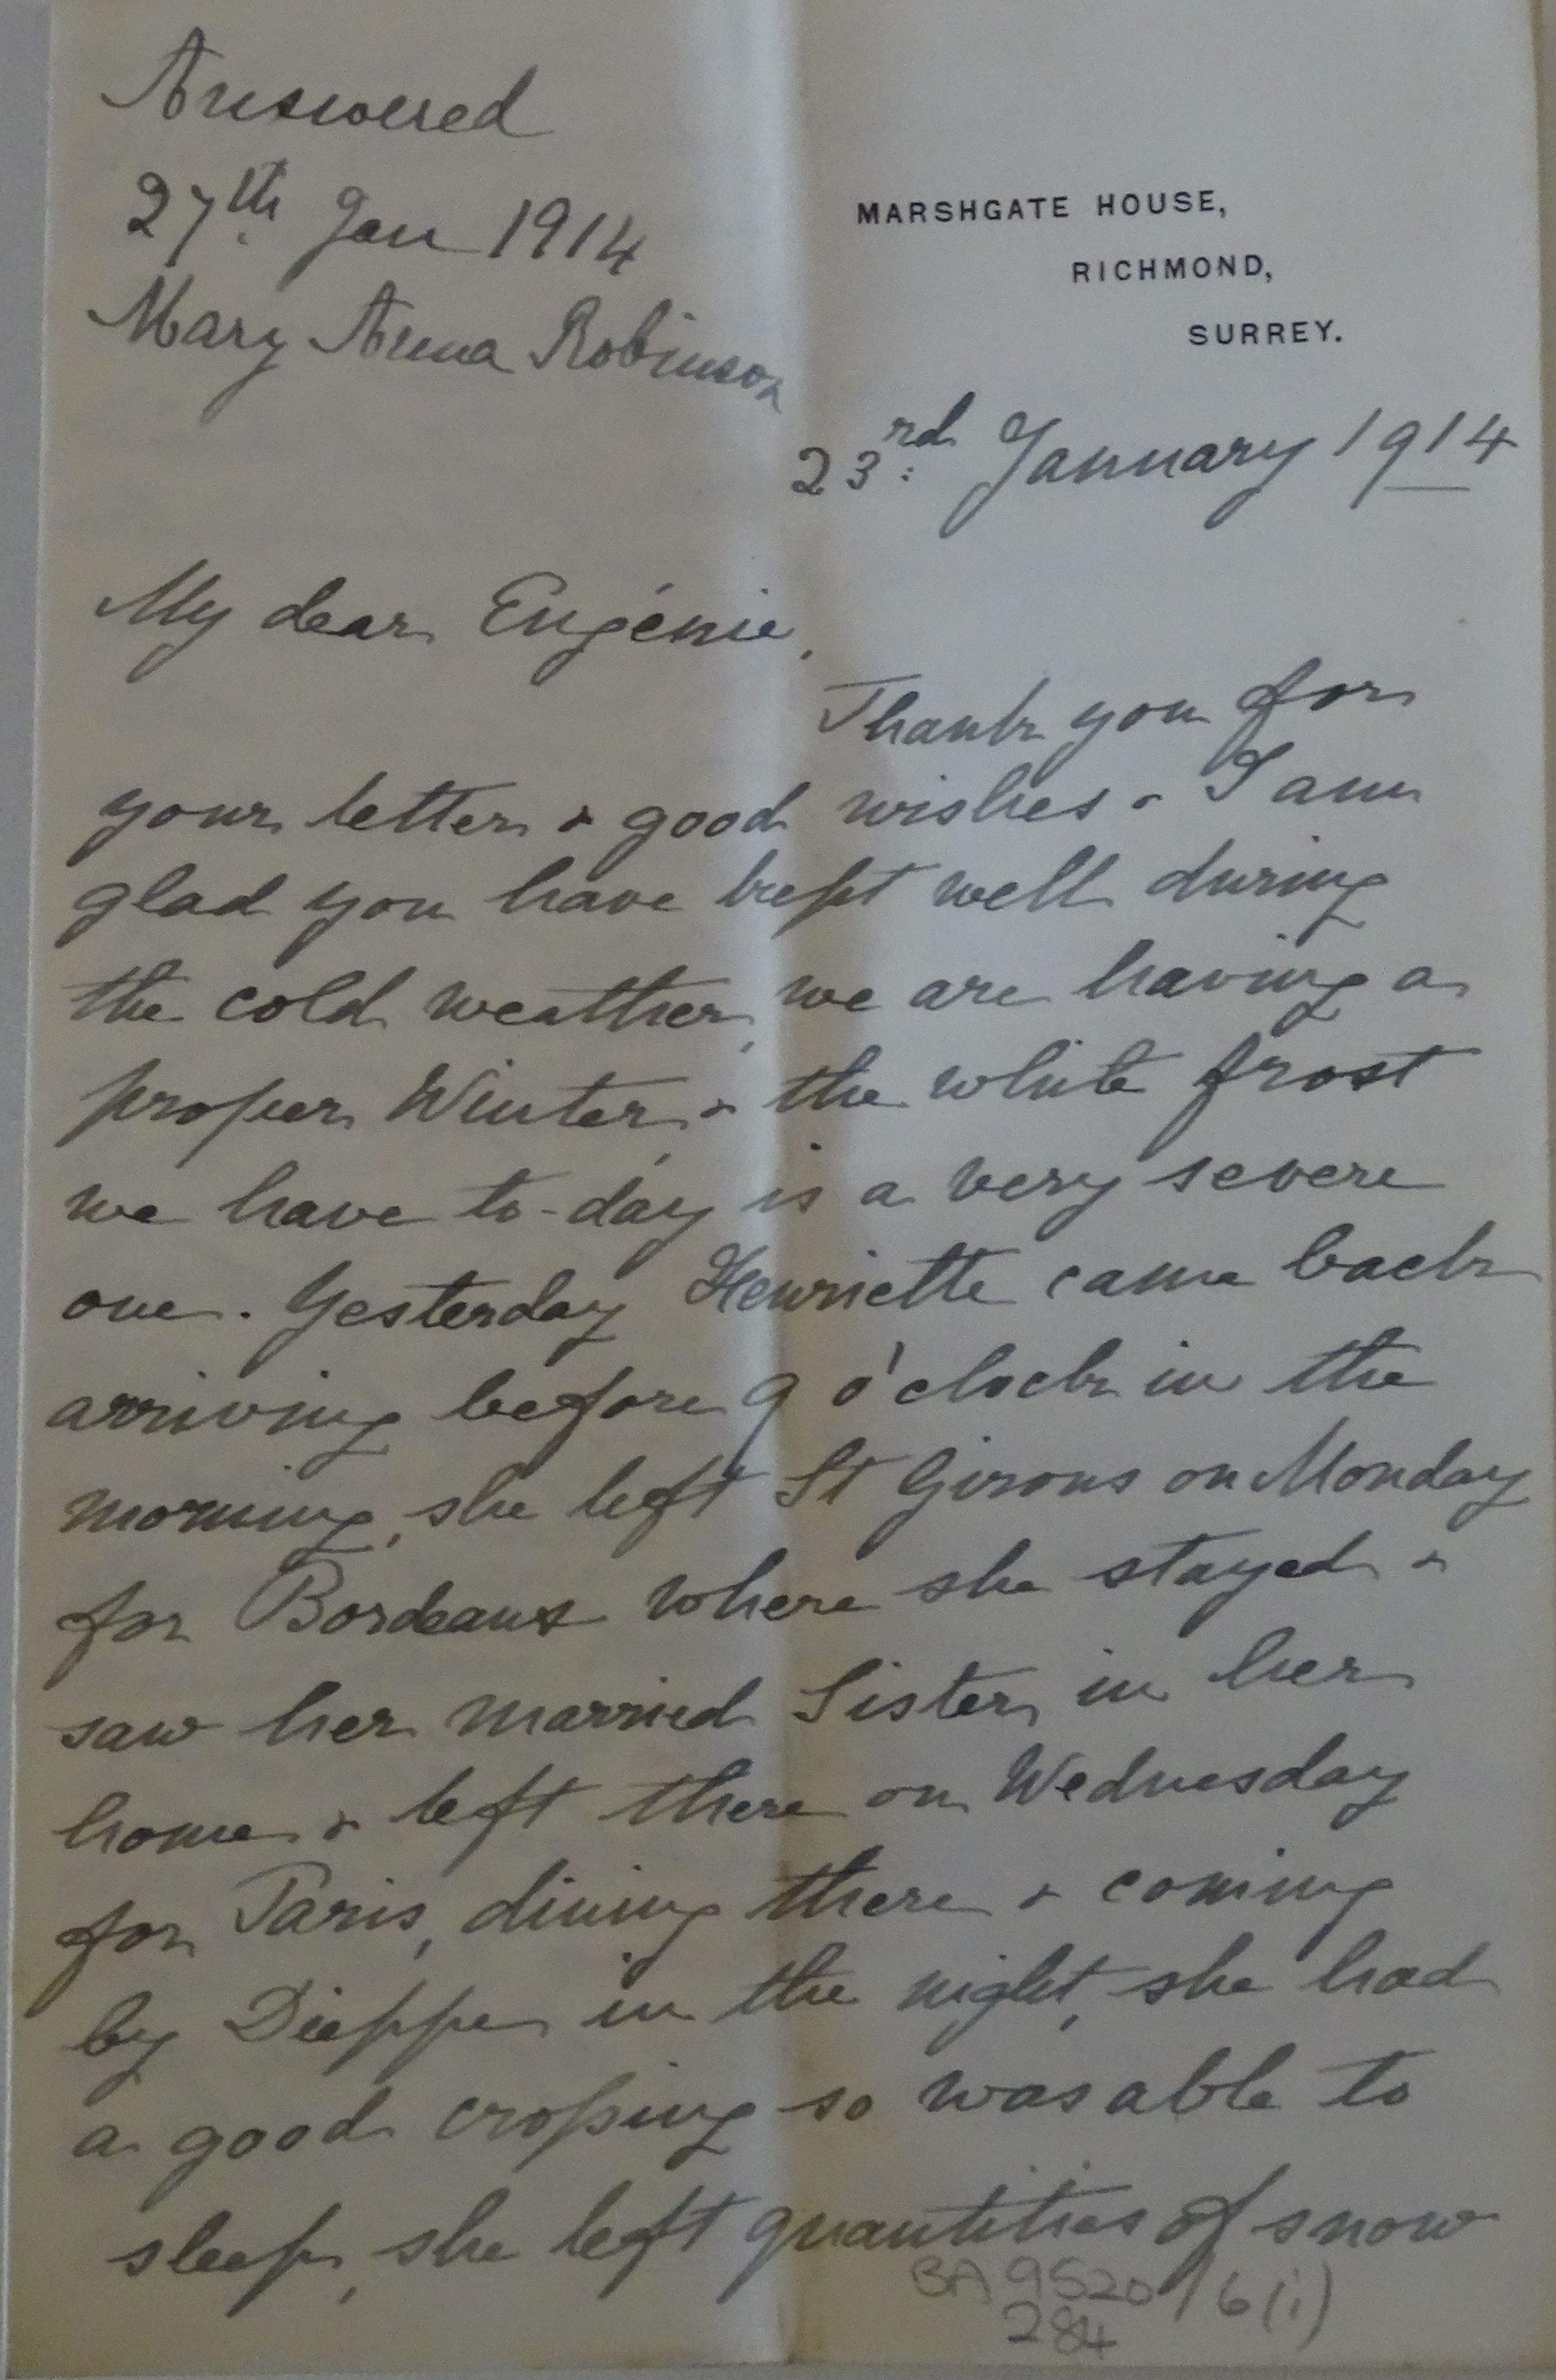 Answered
27th Jan 1914
Mary Anna Robinson
MARSHGATE HOUSE,
RICHMOND,
SURREY.
23rd January 1914
My dear Eugénie,
Thank you for
your letter & good wishes & I am
glad you have kept well during
the cold weather, we are having a
proper Winter, & the white frost
we have to-day is a very severe
one. Yesterday Henriette came back
arriving before 9 o'clock in the
morning, she left St Girons on Monday
for Bordeaux where she stayed &
saw her married Sister in her
home & left there on Wednesday
for Paris, dining there & coming
by Dieppe in the night, she had
a good croſsing so was able to
sleep, she left quantities of snow
BA 9520/6(i)
284